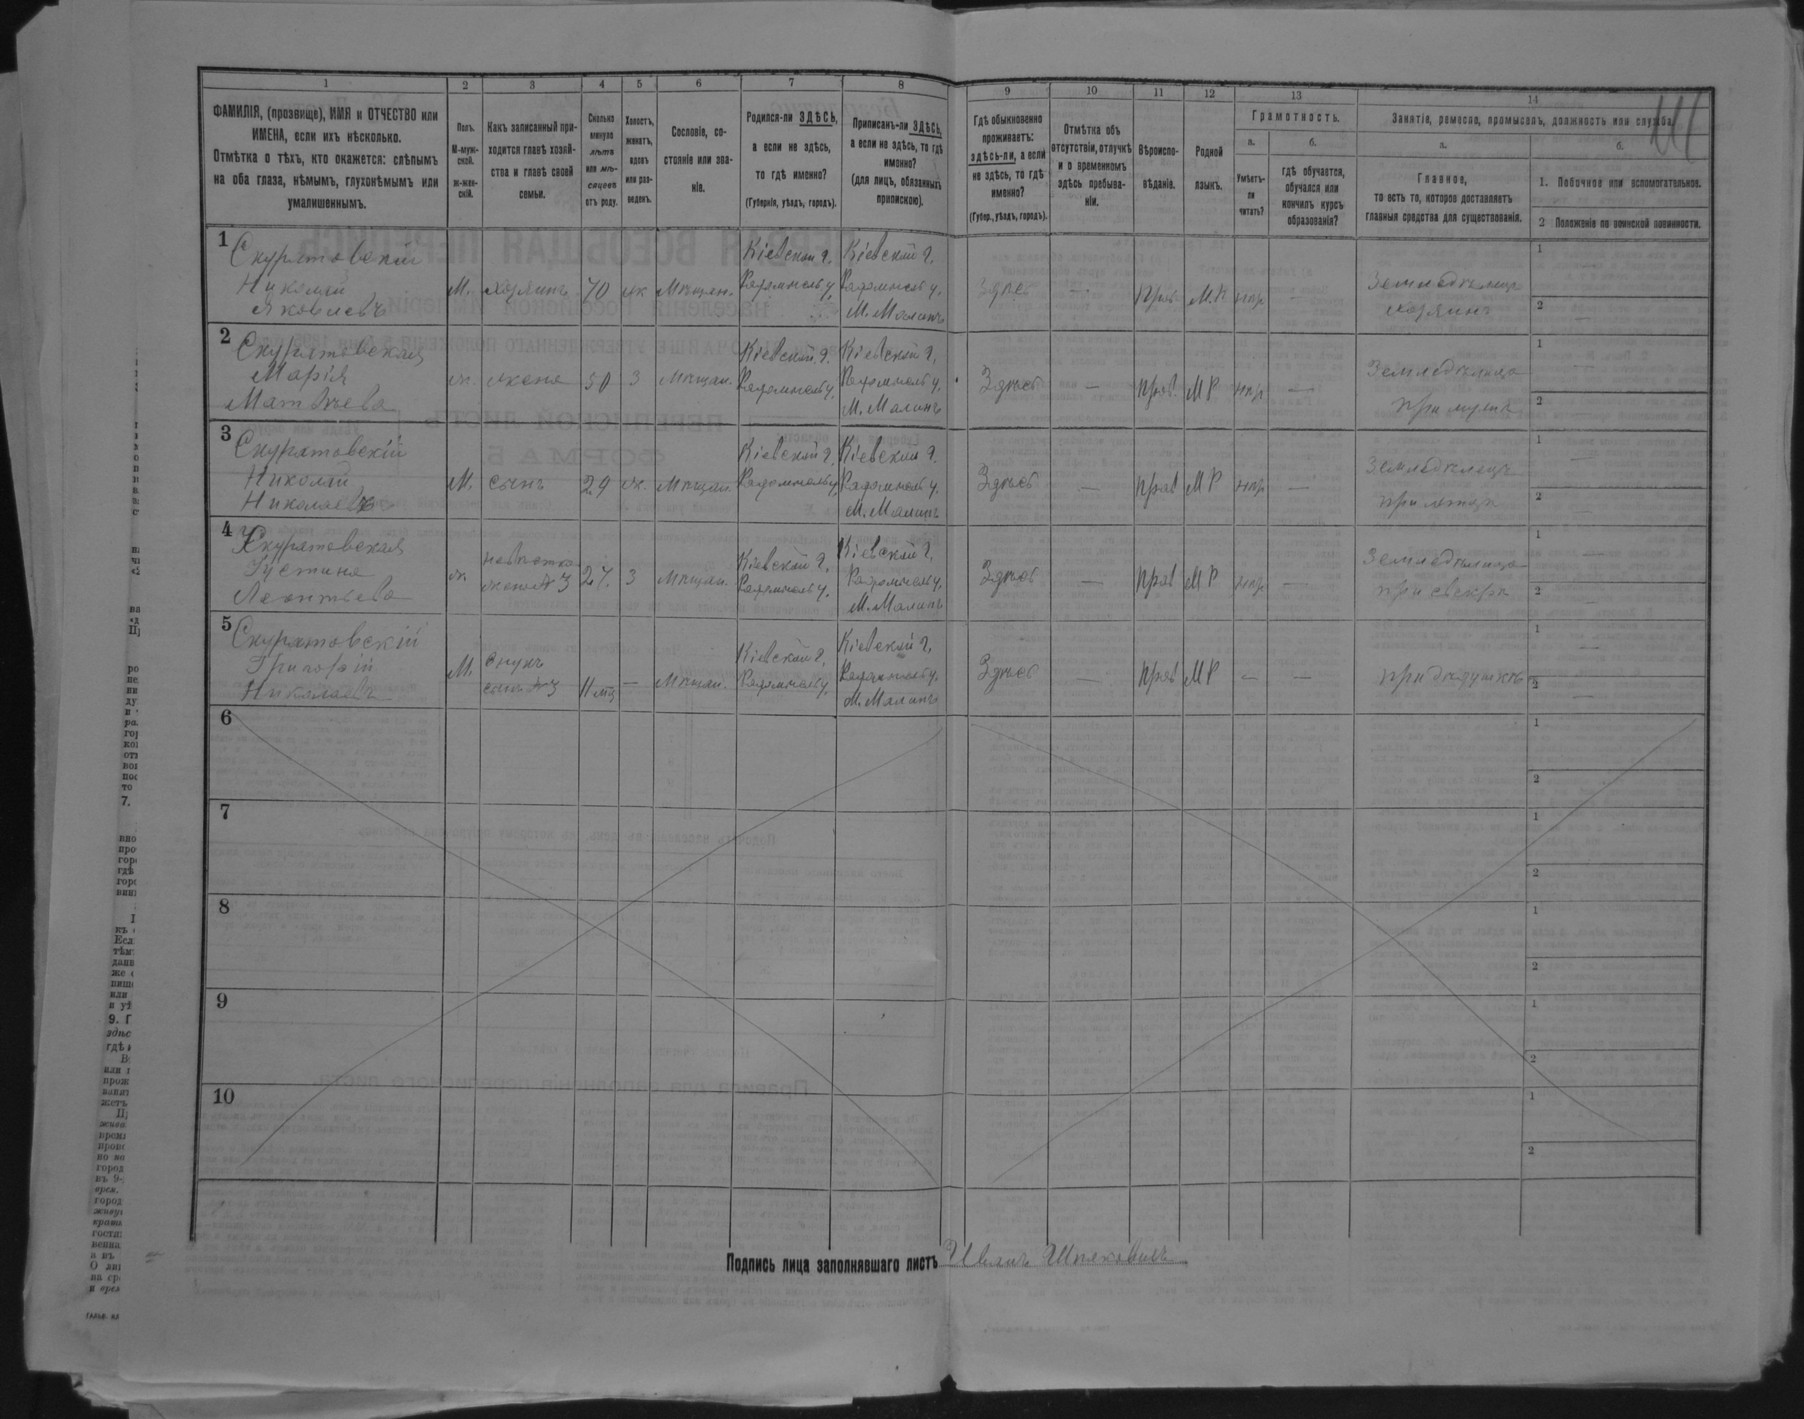 1 2 3 4 5 6 7 8
ФАМИЛІЯ, (прозвище), ИМЯ и ОТЧЕСТВО или
ИМЕНА, если ихъ нѣсколько.
Отмѣтка о тѣхъ, кто окажется: слѣпымъ
на оба глаза, нѣмымъ, глухонѣмымъ или
умалишеннымъ.
Полъ.
М-муж-
ской.
ж-жен-
скій.
Какъ записанный при-
ходится главѣ хозяй-
ства и главѣ своей
семьи.
Сколько
минуло
лѣтъ
или мѣ-
сяцевъ
отъ роду.
Холостъ,
женатъ,
вдовъ
или раз-
веденъ.
Сословіе, со-
стояніе или зва-
ніе.
Родился-ли ЗДѢСЬ,
а если не здѣсь,
то гдѣ именно?
(Губернія, уѣздъ, городъ).
Приписанъ-ли ЗДѢСЬ,
а если не здѣсь, то гдѣ
именно?
(для лицъ, обязанныхъ
припискою).
9 10 11 12 13 14
Гдѣ обыкновенно
проживаетъ:
здѣсь-ли, а если
не здѣсь, то гдѣ
именно?
(Губер., уѣздъ, городъ).
Отмѣтка объ
отсутствіи, отлучкѣ
и о временномъ
здѣсь пребыва-
ніи.
Вѣроиспо-
вѣданіе.
Родной
языкъ.
Грамотность.
а.
Умѣетъ-
ли
читать?
б.
гдѣ обучается,
обучался или
кончилъ курсъ
образованія?
Занятіе, ремесло, промыселъ, должность или служба.
а.
Главное,
то есть то, которое доставляетъ
главныя средства для существованія.
б.
1. Побочное или вспомогательное.
2 Положеніе по воинской повинности.
1 Скуратовскій
Николай
Яковлевъ
М. хозяинъ 70 ж Мѣщан.
Кіевской г.
Радомысль у.
Кіевской г.
Радомысль у.
М. Малинъ
Здѣсь — Прав М.Р. нѣг —
Земледѣлецъ
хозяинъ
1
2 —
2 Скуратовская
Марія
Матвѣева
ж. жена 50 З Мѣщан.
Кіевской г.
Радомысль у.
Кіевской г.
Радомысль у.
М. Малинъ
Здѣсь — Прав. М Р нѣг —
Земледѣлица
при мужѣ
1 —
2 —
3 Скуратовскій
Николай
Николаевъ
М. сынъ 29 ж. Мѣщан.
Кіевской г.
Радомысль у.
Кіевской г.
Радомысль у.
М. Малинъ
Здѣсь — Прав М Р нѣг —
Земледѣлецъ
при отцѣ
1 —
2 —
4 Скуратовская
Устина
Леонтьева
ж невѣстка
жена № 3 27. З Мѣщан.
Кіевской г,
Радомысль у.
Кіевской г,
Радомысль у.
М. Малинъ
Здѣсь — Прав М Р нѣг —
Земледѣлица
при свекрѣ
1 —
2 —
5 Скуратовскій
Григорій
Николаевъ
М. внукъ
сынъ № 3 11 мц — Мѣщан.
Кіевской г.
Радомысль у.
Кіевской г.
Радомысль у.
М. Малинъ
Здѣсь Прав М Р — —
при дѣдушкѣ
1 —
2 —
6
1
2
7
1
2
8
1
2
9
1
2
10
1
2
Подпись лица заполнявшаго листъ